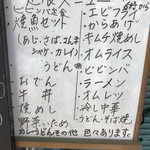 ビビンバ定食
焼魚セット
(あじ、さば、さんま
シャケ、カレイ)
うどん
おでん
牛丼
焼めし
野菜いため
カレーうどんその他 色々あります。
エビフライ
からあげ
キムチ焼めし
オムライス
ビビンバ
ラーメン
オムレツ
冷し中華
うどん・そば